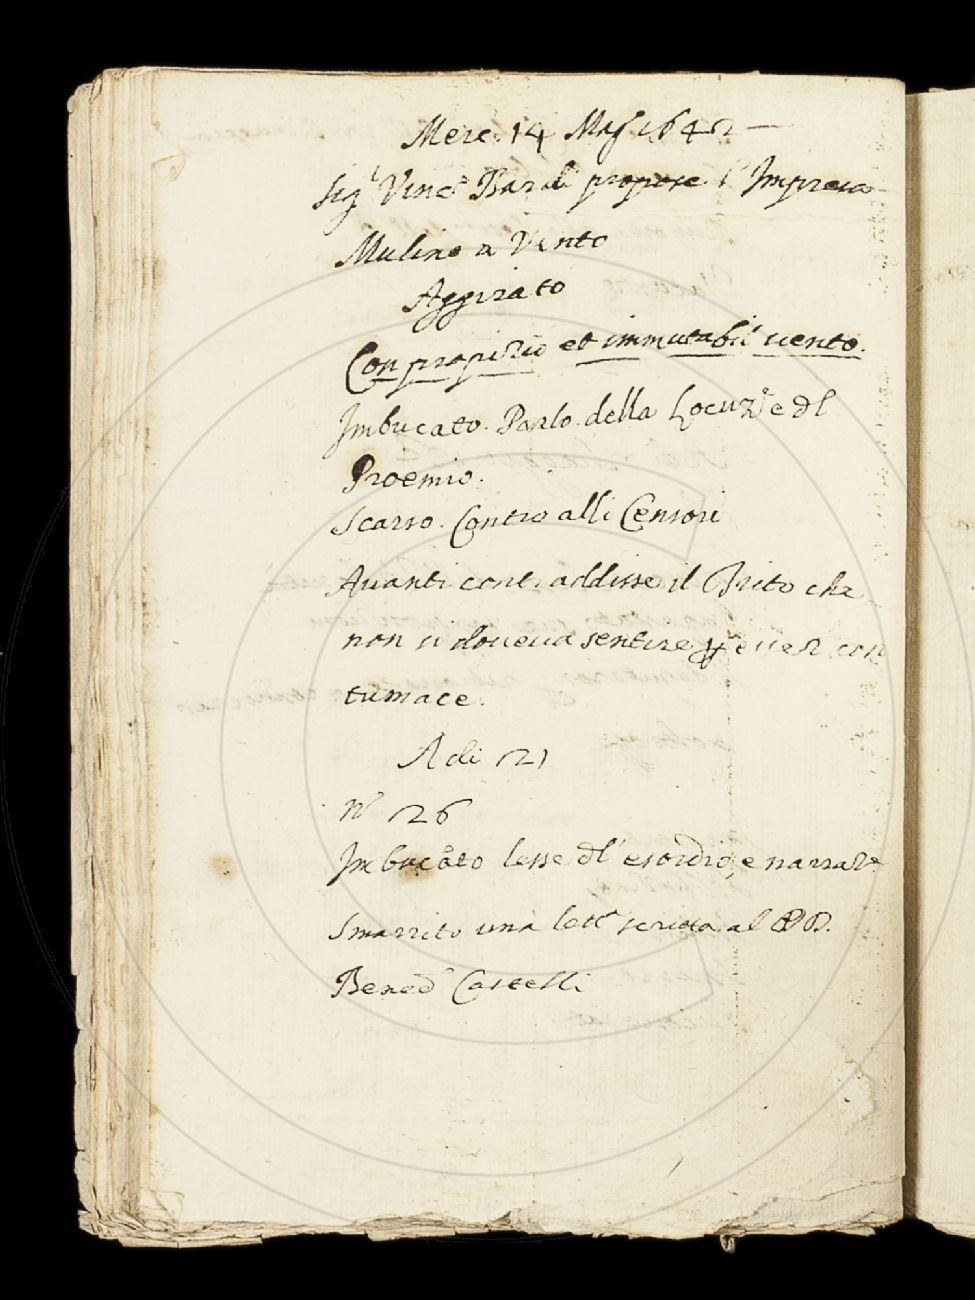 Merc. 14 Mag.º 1642 —
Sig.r Vinc.º Bardi propose l'Impresa
Mulino a Vento
Aggirato
Con propizio et immutabil vento.
Imbucato. Parlo della Locuz.e e dl
Proemio.
Scarso. Contro alli Censori
Avanti contradisse il Trito che
non si doveva sentire p esser con
tumace.
A di 21
N.º 26
Imbucato lesse dl' esordio, e narraz.e
Smarrito una lett.a scritta al P D.
Bened.o Castelli